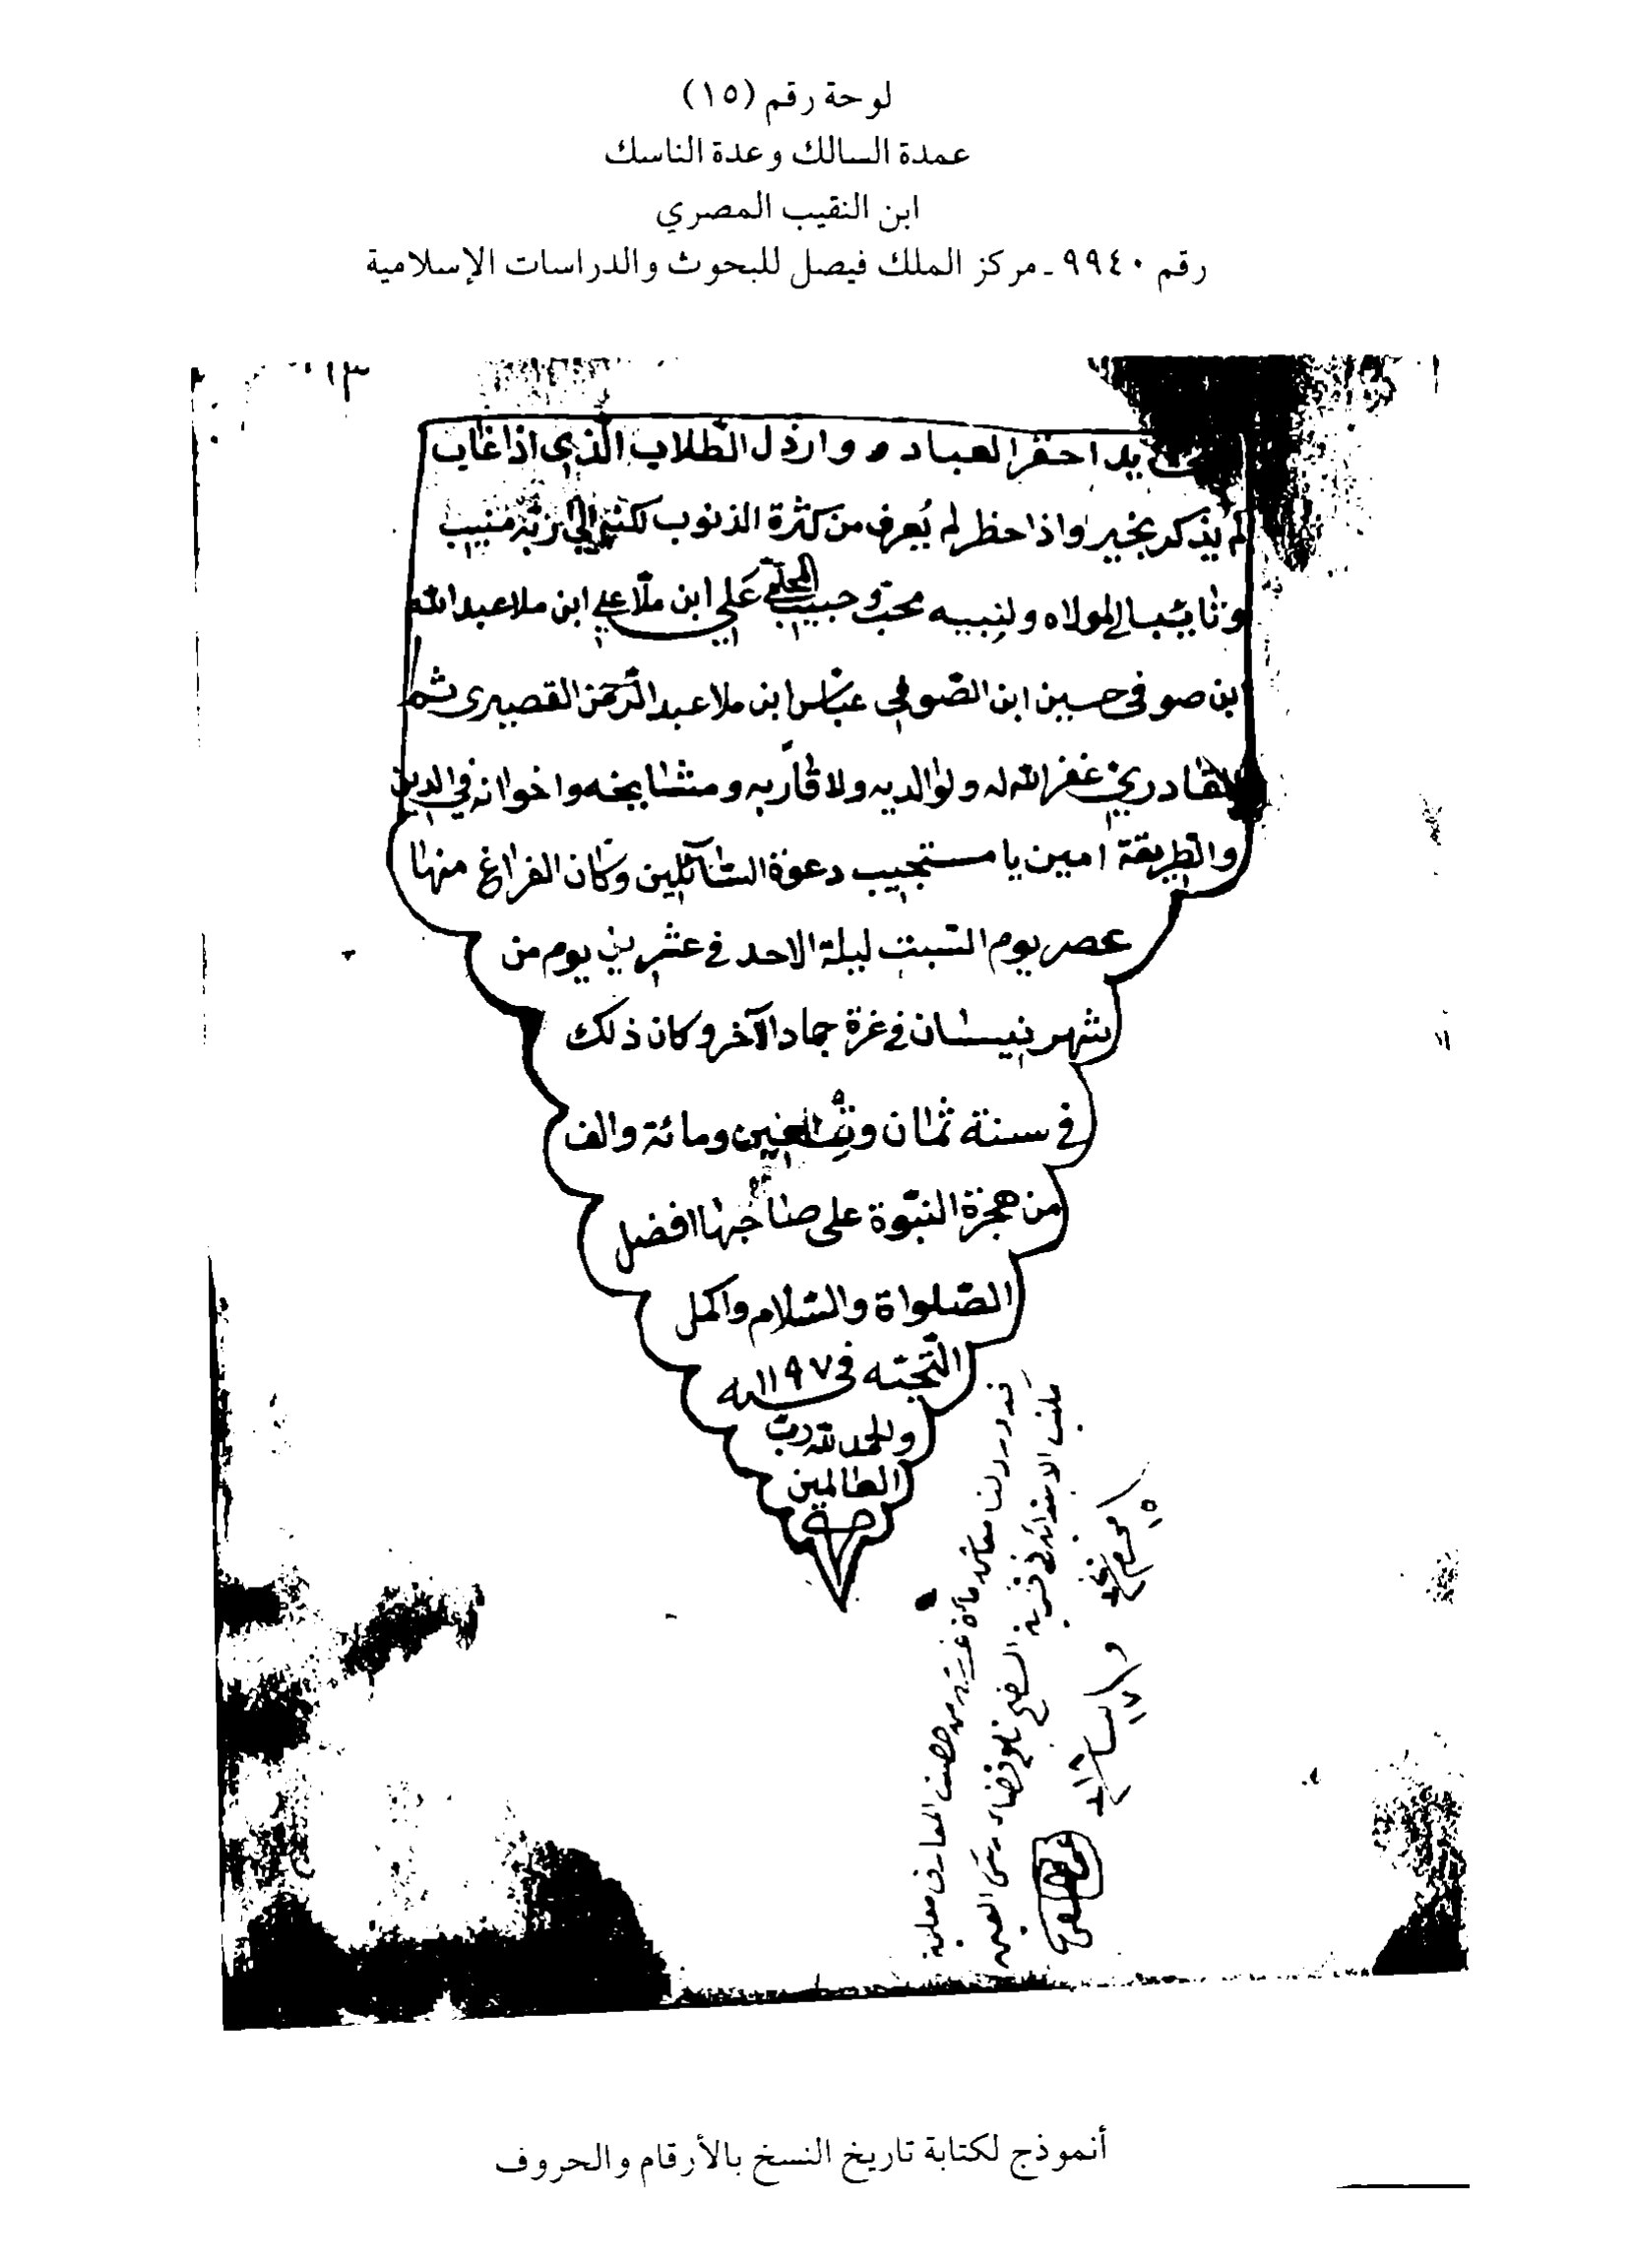 لوحة رقم (١٥)
عمدة السالك وعدة الناسك
ابن النقيب المصري
رقم ٩٩٤٠ ـ مركز الملك فيصل للبحوث والدراسات الإسلامية
١٣
يد احقر العباد وارذل الطلاب الذي اذا غاب
لم يذكر بخير واذا حظر لم يُعرف من كثرة الذنوب لكنه الي ربّه منيب
وتائبا الى مولاه ولنبيه محبّ وحبيب علي ابن ملّا علي ابن ملا عبد الله
ابن صوفى حسين ابن الصّوفى عبّاس ابن ملا عبد الرّحمن القصيرى ثم
القادري غفر الله له ولوالديه ولاقاربه ومشايخه واخوانه في الدين
والطريقة امين يا مستجيب دعوة السّآئلين وكان الفراغ منها
عصر يوم السّبت ليلة الاحد في عشرين يوم من
شهر نيسان في غرة جماد الآخر وكان ذلك
في سنة ثمان و ومائة والف
من هجرة النبّوة على صاحبها افضل
الصّلواة والسّلام واكمل
التّحيّه في ١١٩٧ سنه
والحمد لله ربّ
العالمين
أنموذج لكتابة تاريخ النسخ بالأرقام والحروف